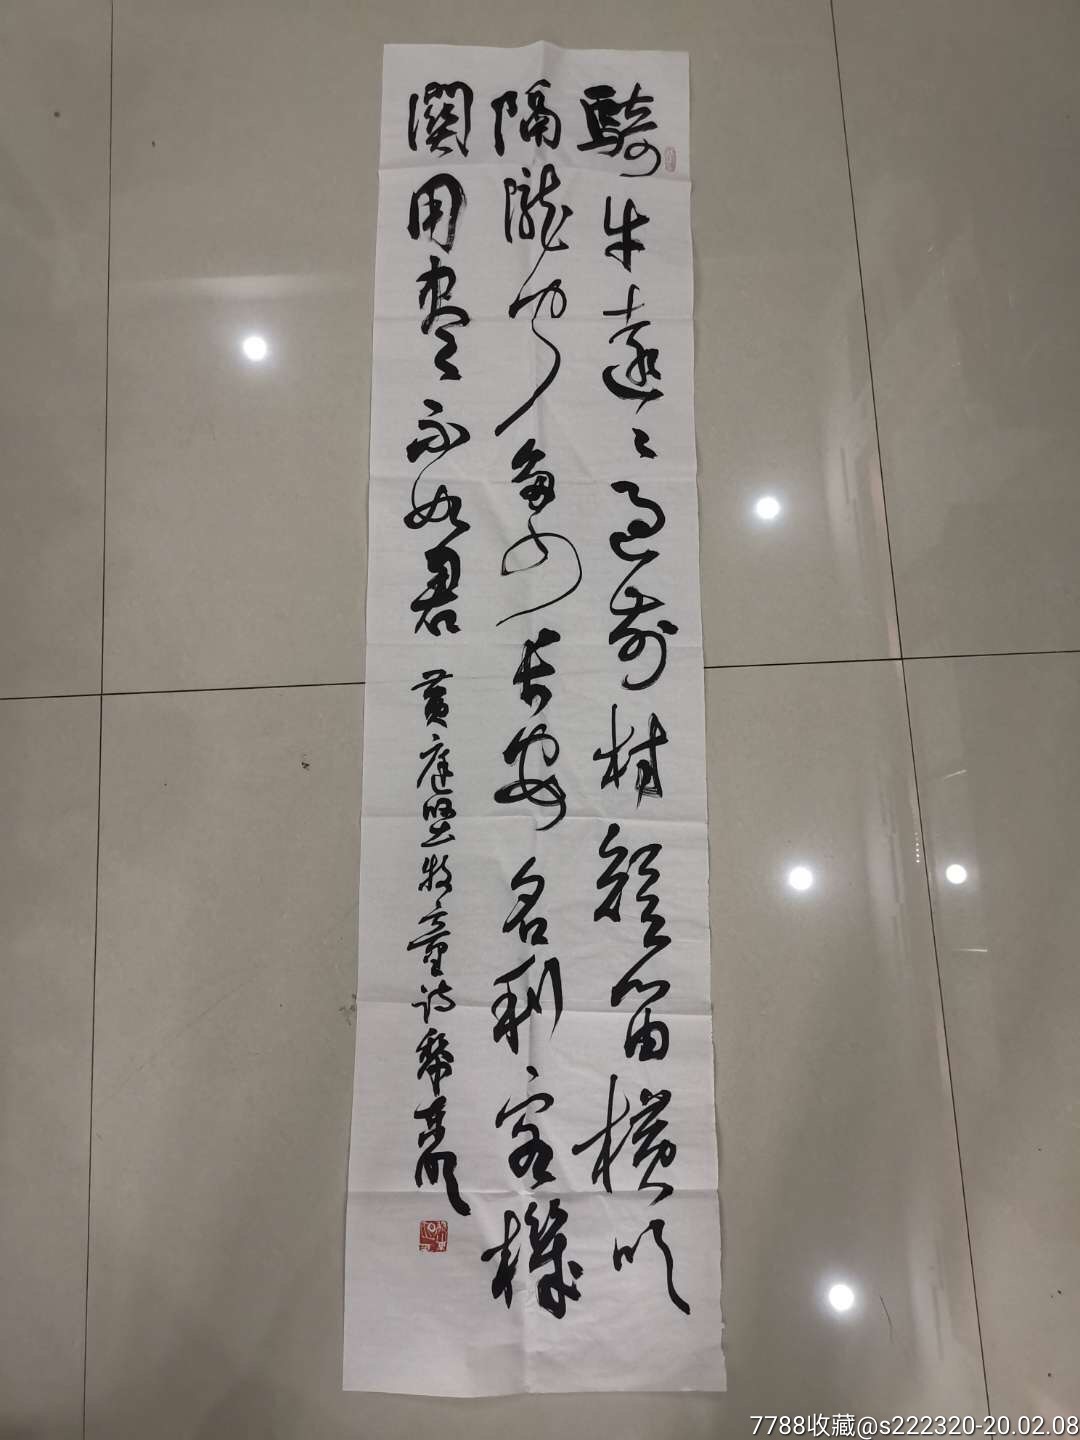 騎牛遠々過前村短笛橫吹
隔隴聞多少長安名利客機
關用盡不如君 黃庭堅牧童詩
7788收藏@s222320-20.02.08